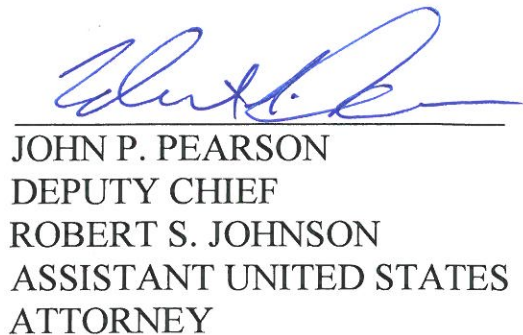 JOHN P. PEARSON
DEPUTY CHIEF
ROBERT S. JOHNSON
ASSISTANT UNITED STATES
ATTORNEY